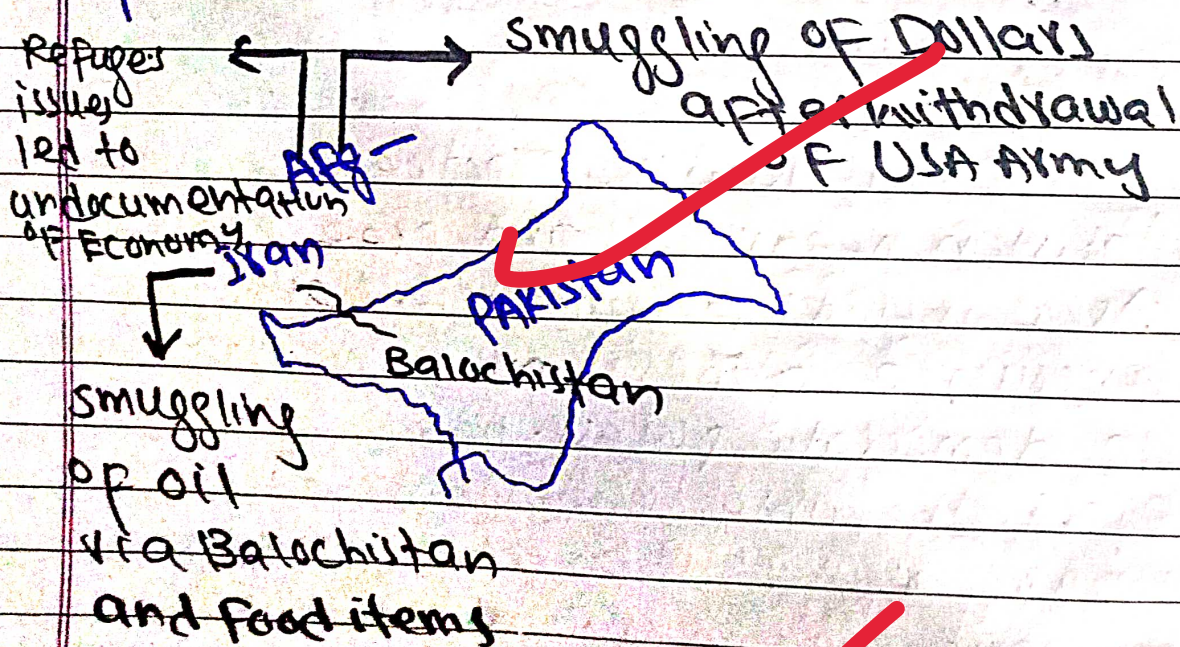 Refuges
issues
led to
undocumentation
of Economy
smuggling of Dollars
after withdrawal
of USA Army
Afg-
Iran
PAKISTAN
Balochistan
smuggling
of oil
via Balochistan
and food items